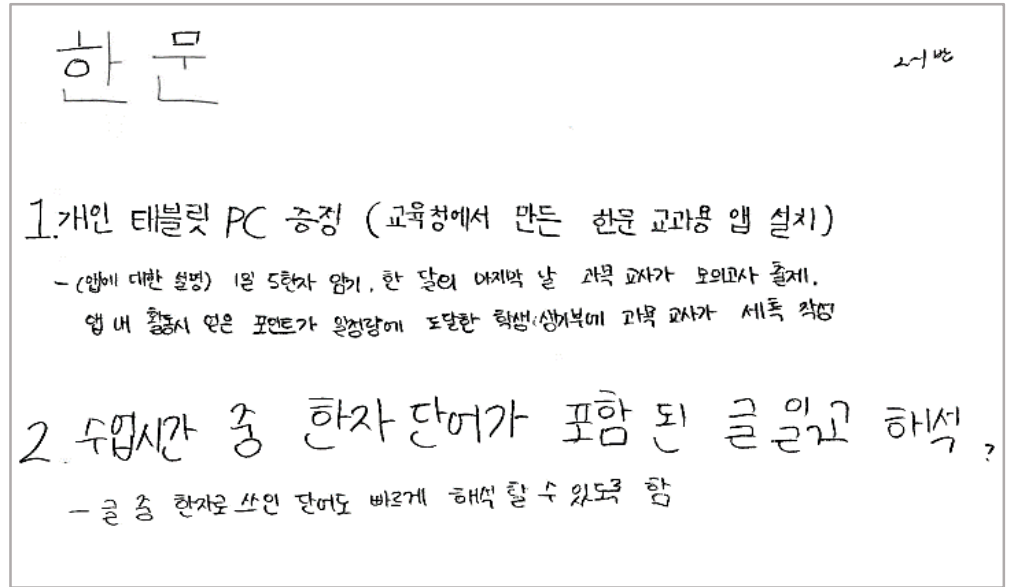 한문
2-1반
1. 개인 태블릿 PC 증정 (교육청에서 만든 한문 교과용 앱 설치)
- (앱에 대한 설명) 1일 5한자 암기, 한 달의 마지막 날 과목 교사가 모의고사 출제.
앱 내 활동시 얻은 포인트가 일정량에 도달한 학생 생기부에 과목 교사가 세특 작성
2. 수업시간 중 한자 단어가 포함 된 글 읽고 해석.?
- 글 중 한자로 쓰인 단어도 빠르게 해석 할 수 있도록 함